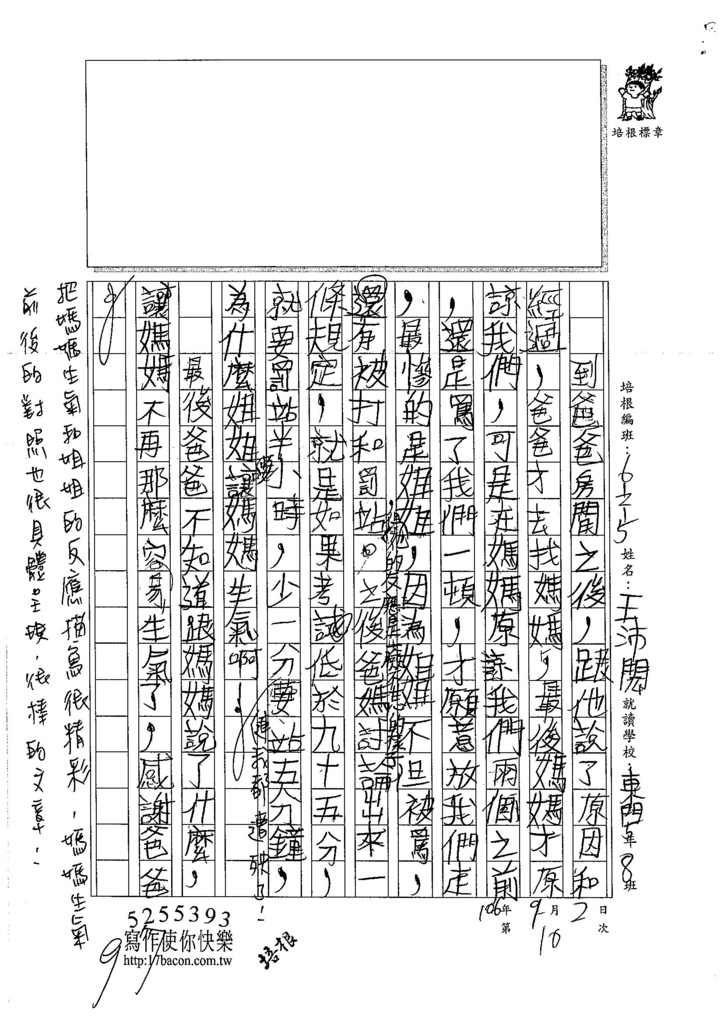 培根標章
培根編班：16215 姓名：王沛 就讀學校：東門5年8班
106年9月2日
第10次
到爸爸房間之後，跟他說了原因和
經過，爸爸才去找媽媽，最後媽媽才原
諒我們，可是在媽媽原諒我們兩個之前
，還是罵了我們一頓，才願意放我們走
，最慘的是姐姐，因為姐姐不但被罵，
還有被打和罰站。之後爸媽討論出來一
條規定，就是如果考試低於九十五分，
就要罰站半小時，少一分要站五分鐘，
為什麼姐姐讓媽媽生氣啊！
連我都遭殃了！
最後爸爸不知道跟媽媽說了什麼，
讓媽媽不再那麼容易生氣了，感謝爸爸
把媽媽生氣和姐姐的反應描寫很精彩，媽媽生氣
前後的對照也很具體呈現，很棒的文章！
97
5255393
寫作使你快樂
http:/17bacon.com.tw
培根